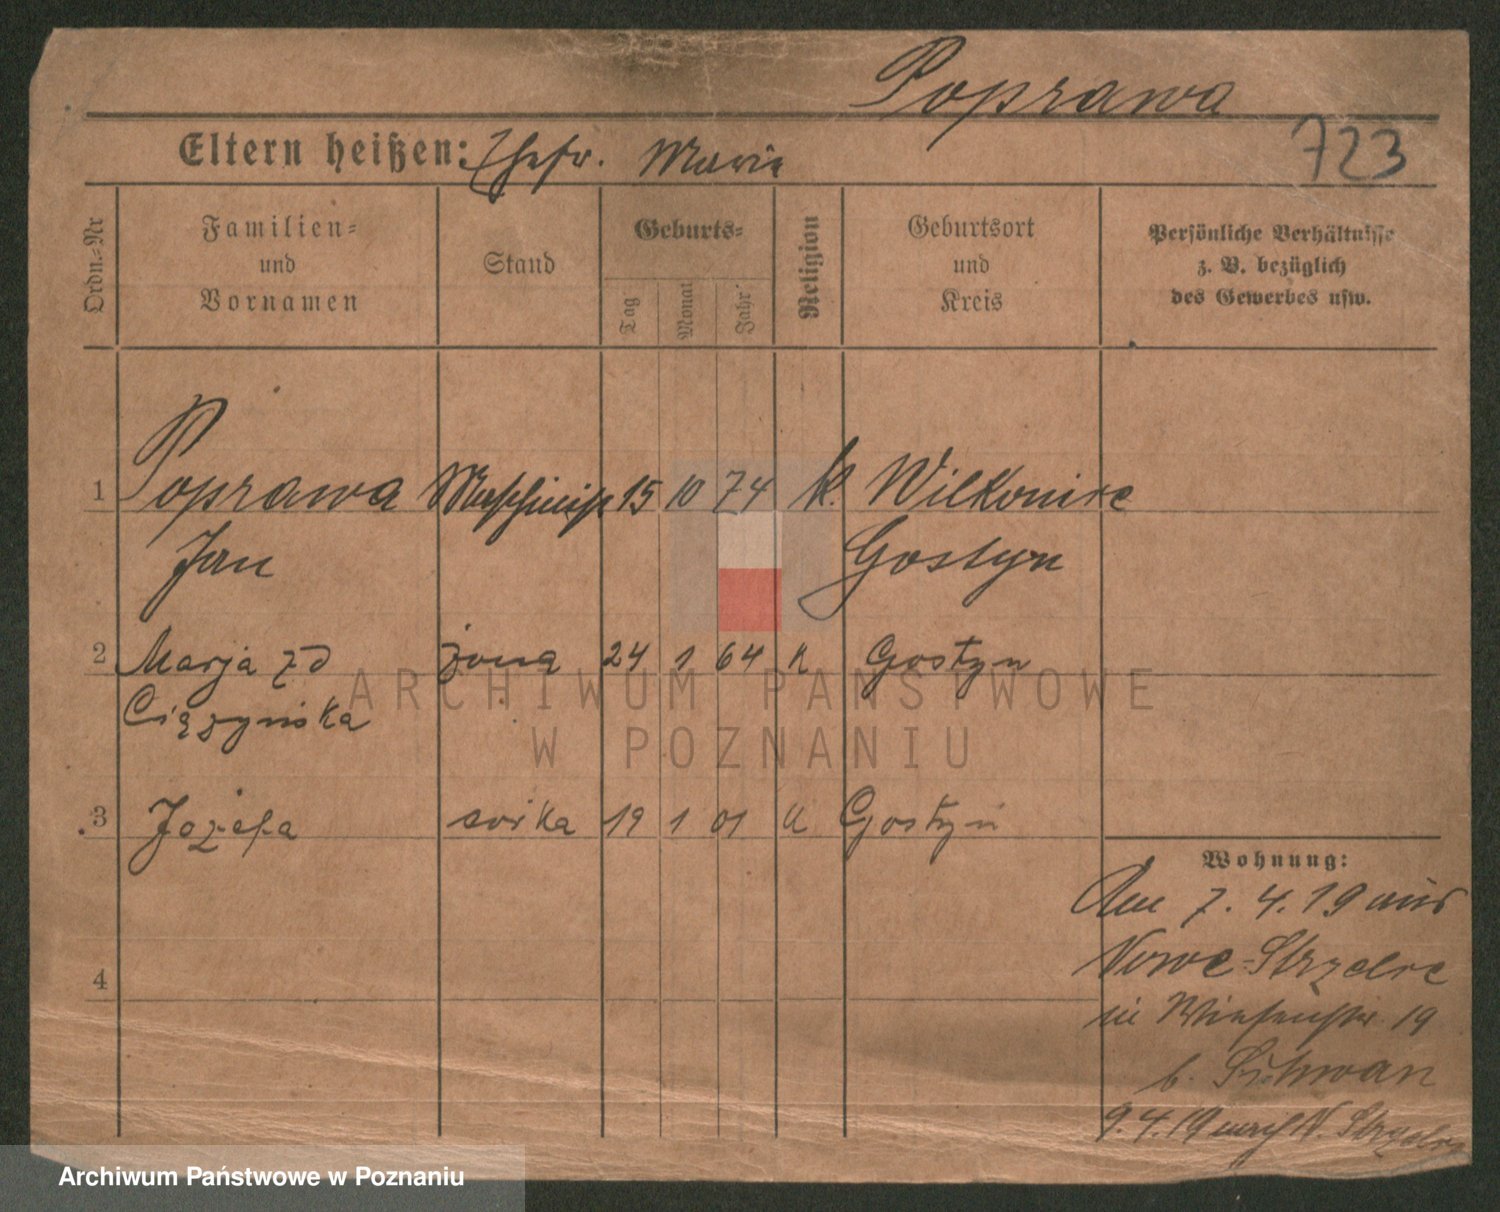 Poprawa
Eltern heißen: Ehefr. Marie
723
Ordn.-Nr
Familien=
und
Vornamen
Stand
Geburts=
Tag
Monat
Jahr
Religion
Geburtsort
und
Kreis
Persönliche Verhältnisse
z. B. bezüglich
des Gewerbes usw.
1 Poprawa Maschinist 15 10 74 k. Wilkonice
Jan Gostyn
2 Marja zd żona 24 1 64 k Gostyn
3 Józefa córka 19 1 01 k Gostyń
Wohnung:
Am 7. 4. 19 aus
Nowe-Strzelce
in 19
b.
4
9. 4. 19 nach N. Strzelce
ARCHIWUM PAŃSTWOWE
W POZNANIU
Archiwum Państwowe w Poznaniu